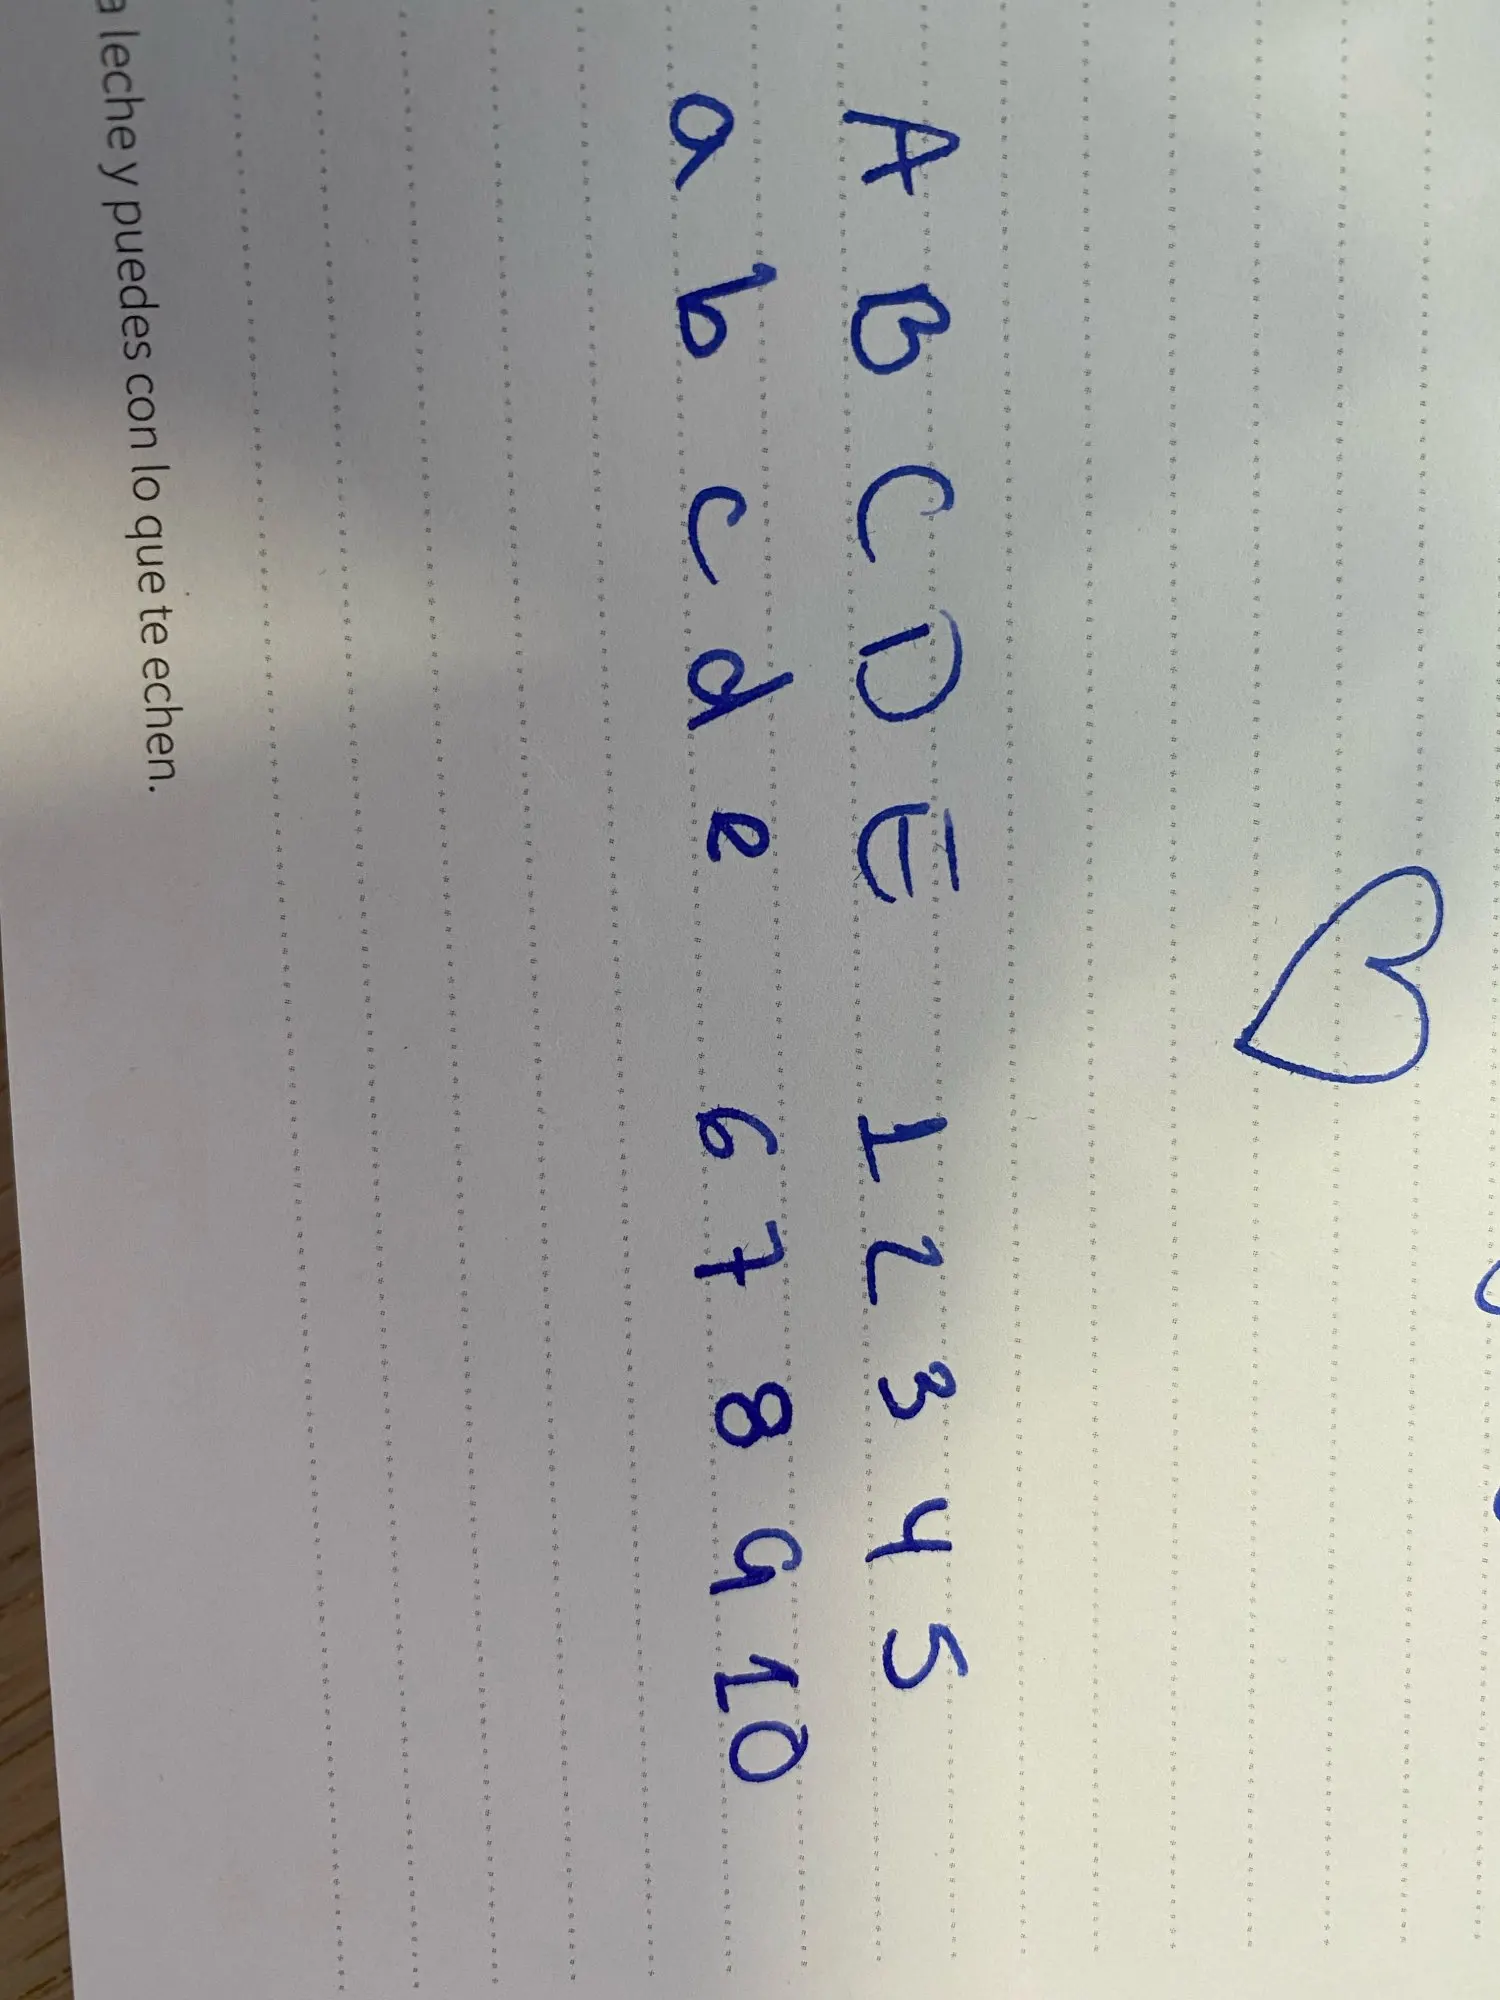 A B C D E 1 2 3 4 5
a b c d e 6 7 8 9 10
a leche y puedes con lo que te echen.